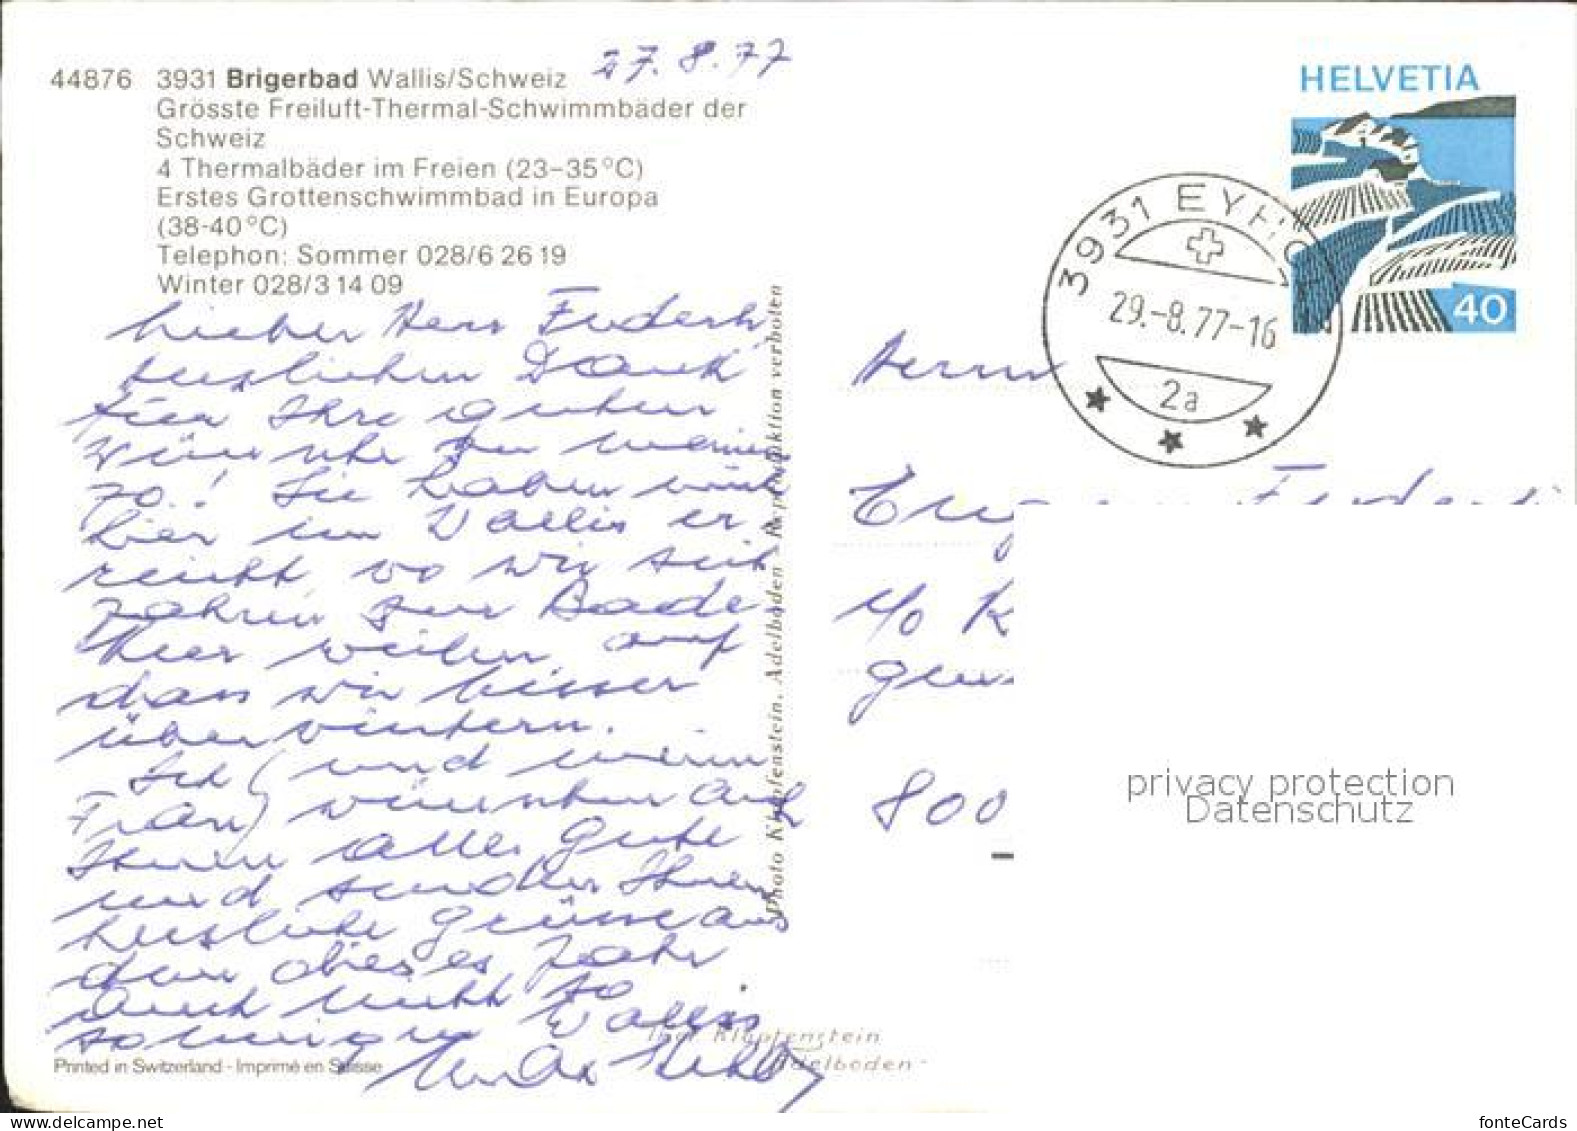 27.8.77
44876 3931 Brigerbad Wallis/Schweiz
Grösste Freiluft-Thermal-Schwimmbäder der
Schweiz
4 Thermalbäder im Freien (23-35°C)
Erstes Grottenschwimmbad in Europa
(38-40°C)
Telephon: Sommer 028/6 26 19
Winter 028/3 14 09
Lieber Herr
herzlichen Dank
für Ihre guten
Wünsche zu meinen
70.! Sie haben mich
hier im Wallis er
reicht wo wir seit
Jahren zur Bade
Kur weilen auf
dass wir besser
überwintern.
Ich (und meine
Frau) wünschen auch
Ihnen alles Gute
und senden Ihnen
herzliche Grüsse aus
dem dieses Jahr
auch nicht so
sonnigen Wallis
Printed in Switzerland - Imprimé en Suisse
Photo Klopfenstein, Adelboden - Reproduktion verboten
Klopfenstein
Adelboden
HELVETIA
40
3931 EYHOLZ
29.-8.77-16
2a
Herrn
c/o K
800
privacy protection
Datenschutz
fonteCards